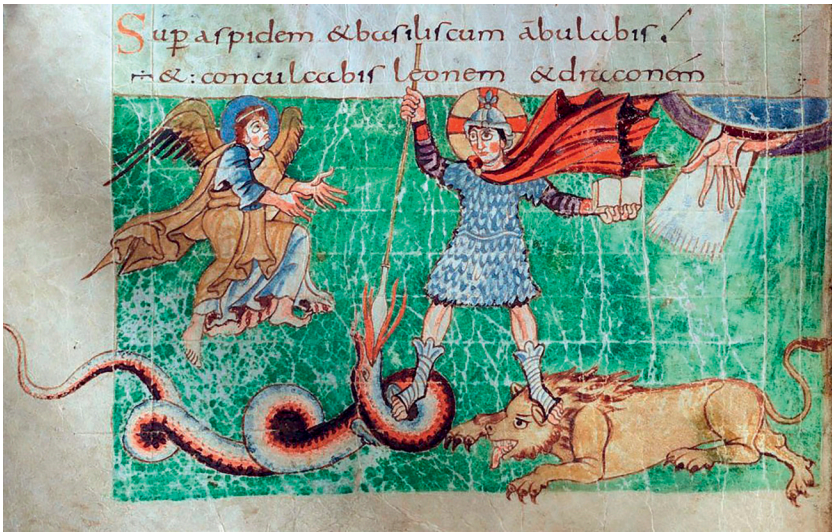 Sup aspidem &basiliscum ābulabis.
&: conculcabis leonem &draconem